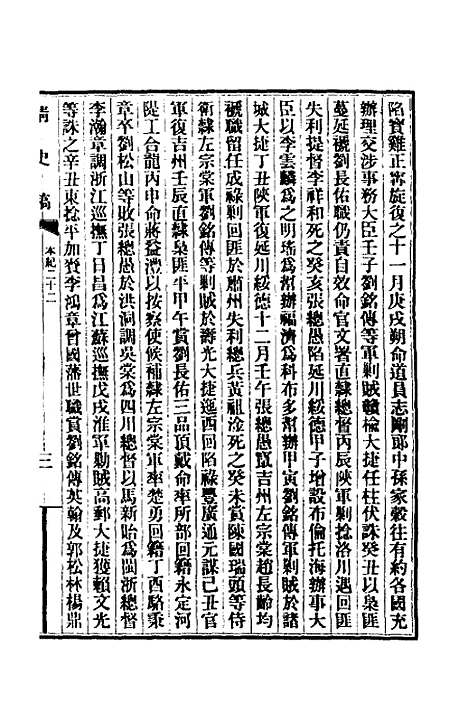 陷寶雞正甯旋復之十一月庚戌朔命道員志剛郎中孫家穀往有約各國充
辦理交涉事務大臣壬子劉銘傳等軍剿賊贛榆大捷任柱伏誅癸丑以梟匪
蔓延褫劉長佑職仍責自效命官文署直隸總督丙辰陜軍剿捻洛川遇回匪
失利提督李祥和死之癸亥張總愚陷延川綏德甲子增設布倫托海辦事大
臣以李雲麟爲之明瑤爲幫辦福濟爲科布多幫辦甲寅劉銘傳軍剿賊於諸
城大捷丁丑陜軍復延川綏德十二月壬午張總愚竄吉州左宗棠趙長齡均
褫職留任成祿剿回匪於肅州失利總兵黃祖淦死之癸未賞陳國瑞頭等侍
衞隸左宗棠軍劉銘傳等剿賊於壽光大捷逸西回陷祿豐廣通元謀己丑官
軍復吉州壬辰直隸梟匪平甲午賞劉長佑三品頂戴命率所部回籍永定河
隄工合龍丙申命蔣益灃以按察使候補隸左宗棠軍率楚勇回籍丁酉駱秉
章卒劉松山等敗張總愚於洪洞調吳棠爲四川總督以馬新貽爲閩浙總督
李瀚章調浙江巡撫丁日昌爲江蘇巡撫戊戌淮軍剿賊高郵大捷獲賴文光
等誅之辛丑東捻平加賚李鴻章曾國藩世職賞劉銘傳英翰及郭松林楊鼎
清史稿
本紀二十二
三